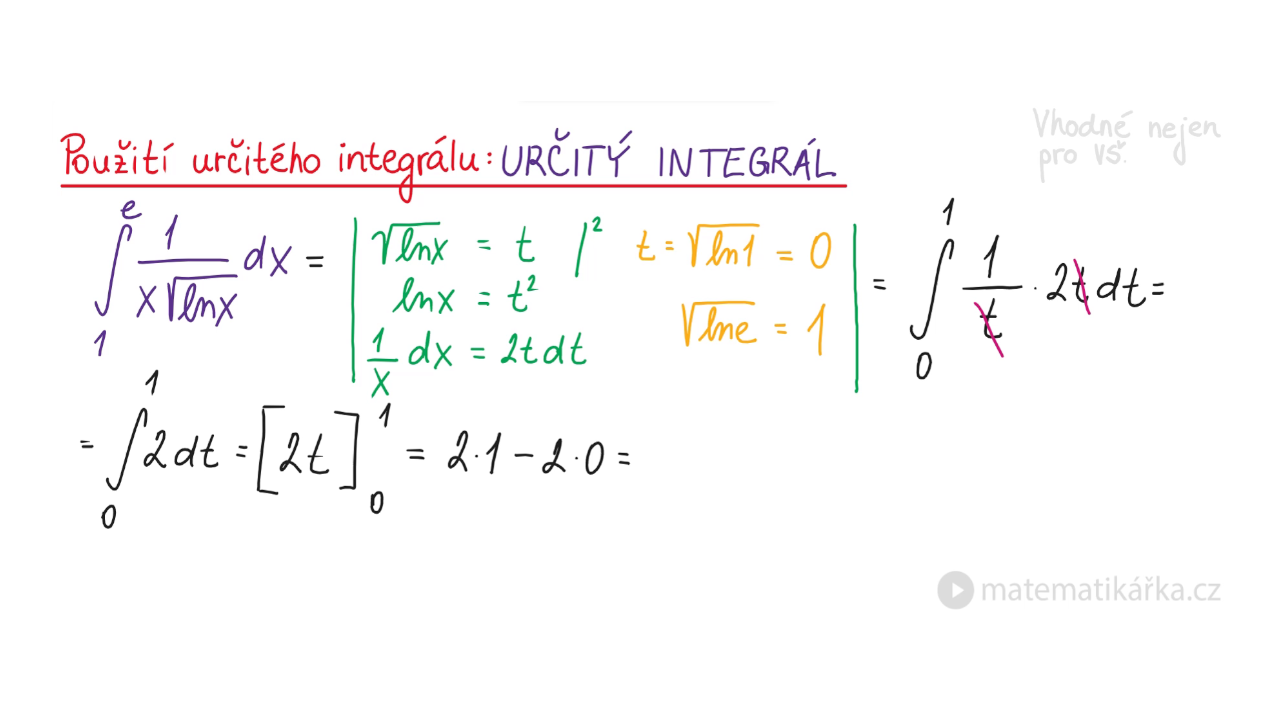 Použití určitého integrálu: URČITÝ INTEGRÁL
Vhodné nejen
pro VŠ.
∫₁ᵉ 1/(x√lnx) dx = | √lnx = t /² t = √ln1 = 0 | = ∫₀¹ 1/t · 2t dt =
lnx = t² √lne = 1
1/x dx = 2t dt
= ∫₀¹ 2 dt = [2t]₀¹ = 2·1 − 2·0 =
matematikářka.cz